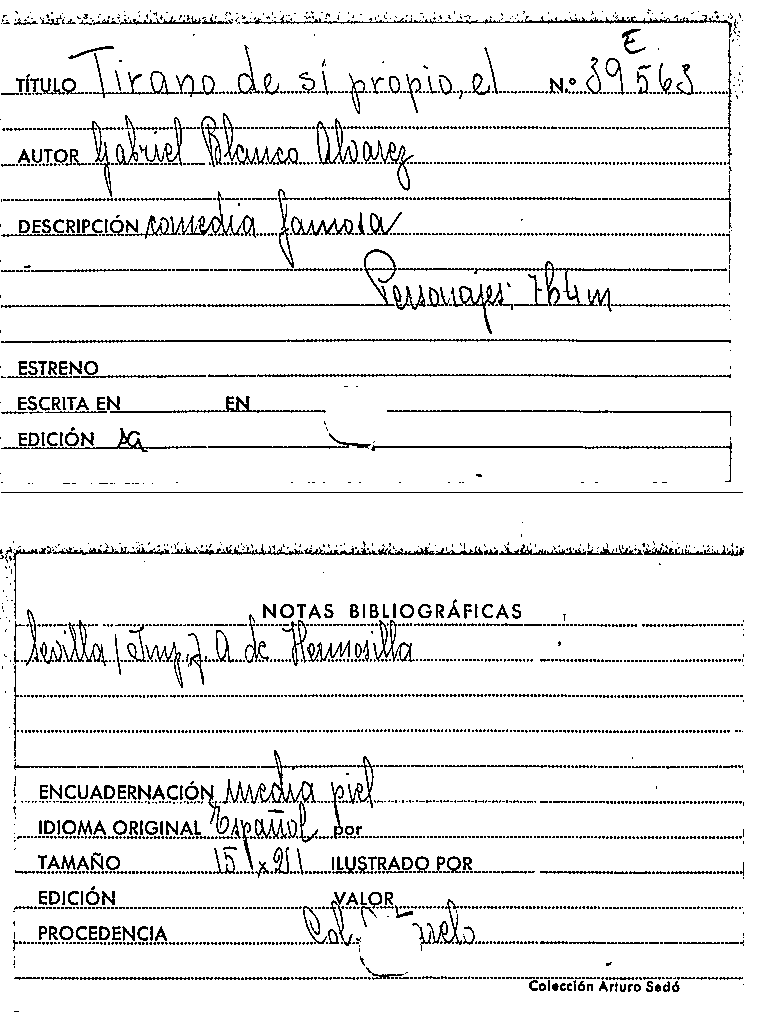 E
TÍTULO Tirano de sí propio, el N.º 39563
AUTOR Gabriel Blanco Alvarez
DESCRIPCIÓN comedia famosa
Personajes; 7h4m
ESTRENO
ESCRITA EN EN
EDICIÓN
NOTAS BIBLIOGRÁFICAS
Sevilla (Imp.) A de Hermosilla
ENCUADERNACIÓN media piel
IDIOMA ORIGINAL Español por
TAMAÑO 15 x 21 ILUSTRADO POR
EDICIÓN VALOR
PROCEDENCIA Col.
Colección Arturo Sedó